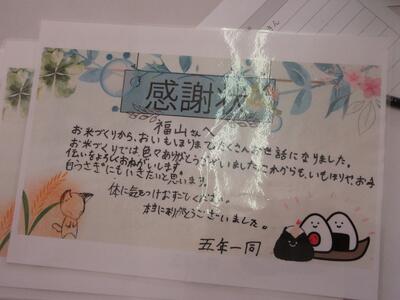 感謝状
福山さんへ
お米づくりから、おいもほりまでたくさんお世話になりました。
お米づくりでは色々ありがとうございました。これからも、いもほりや、お手
伝いをよろしくおねがいします。
白うさぎにもいきたいと思います。
体に気をつけておすごしください。
本当にありがとうございました。
五年一同